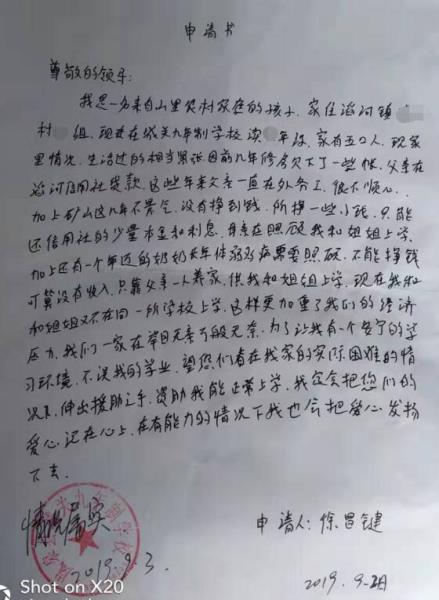 申请书
尊敬的领导:
我是一名来自山里农村家庭的孩子,家住 河镇
村 组,现在在城关九年制学校读 年级,家有五口人,现家
里情况,生活过的相当紧张因前几年修房欠下了一些债,父亲在
河信用社贷款,这些年来父亲一直在外务工,很不顺心,
加上矿山这几年不景气,没有挣到钱,所挣一些小钱,只能
还信用社的少量本金和利息,母亲在照顾我和姐姐上学,
加上还有一个年迈的奶奶长年体弱多病需要照顾,不能挣钱
可算没有收入,只靠父亲一人养家,供我和姐姐上学,现在我和
和姐姐又不在同一所学校上学,这样更加重了我们的经济
压力,我们一家在举目无亲万般无奈,为了让我有一个安宁的学
习环境,不误我的学业,望您们看在我家的实际困难的情
况下,伸出援助之手,资助我能正常上学,我定会把您们的
爱心记在心上,在有能力的情况下我也会把爱心发扬
下去.
情况属实
2019.9.3.
申请人:徐昌键
2019.9.2日
Shot on X20